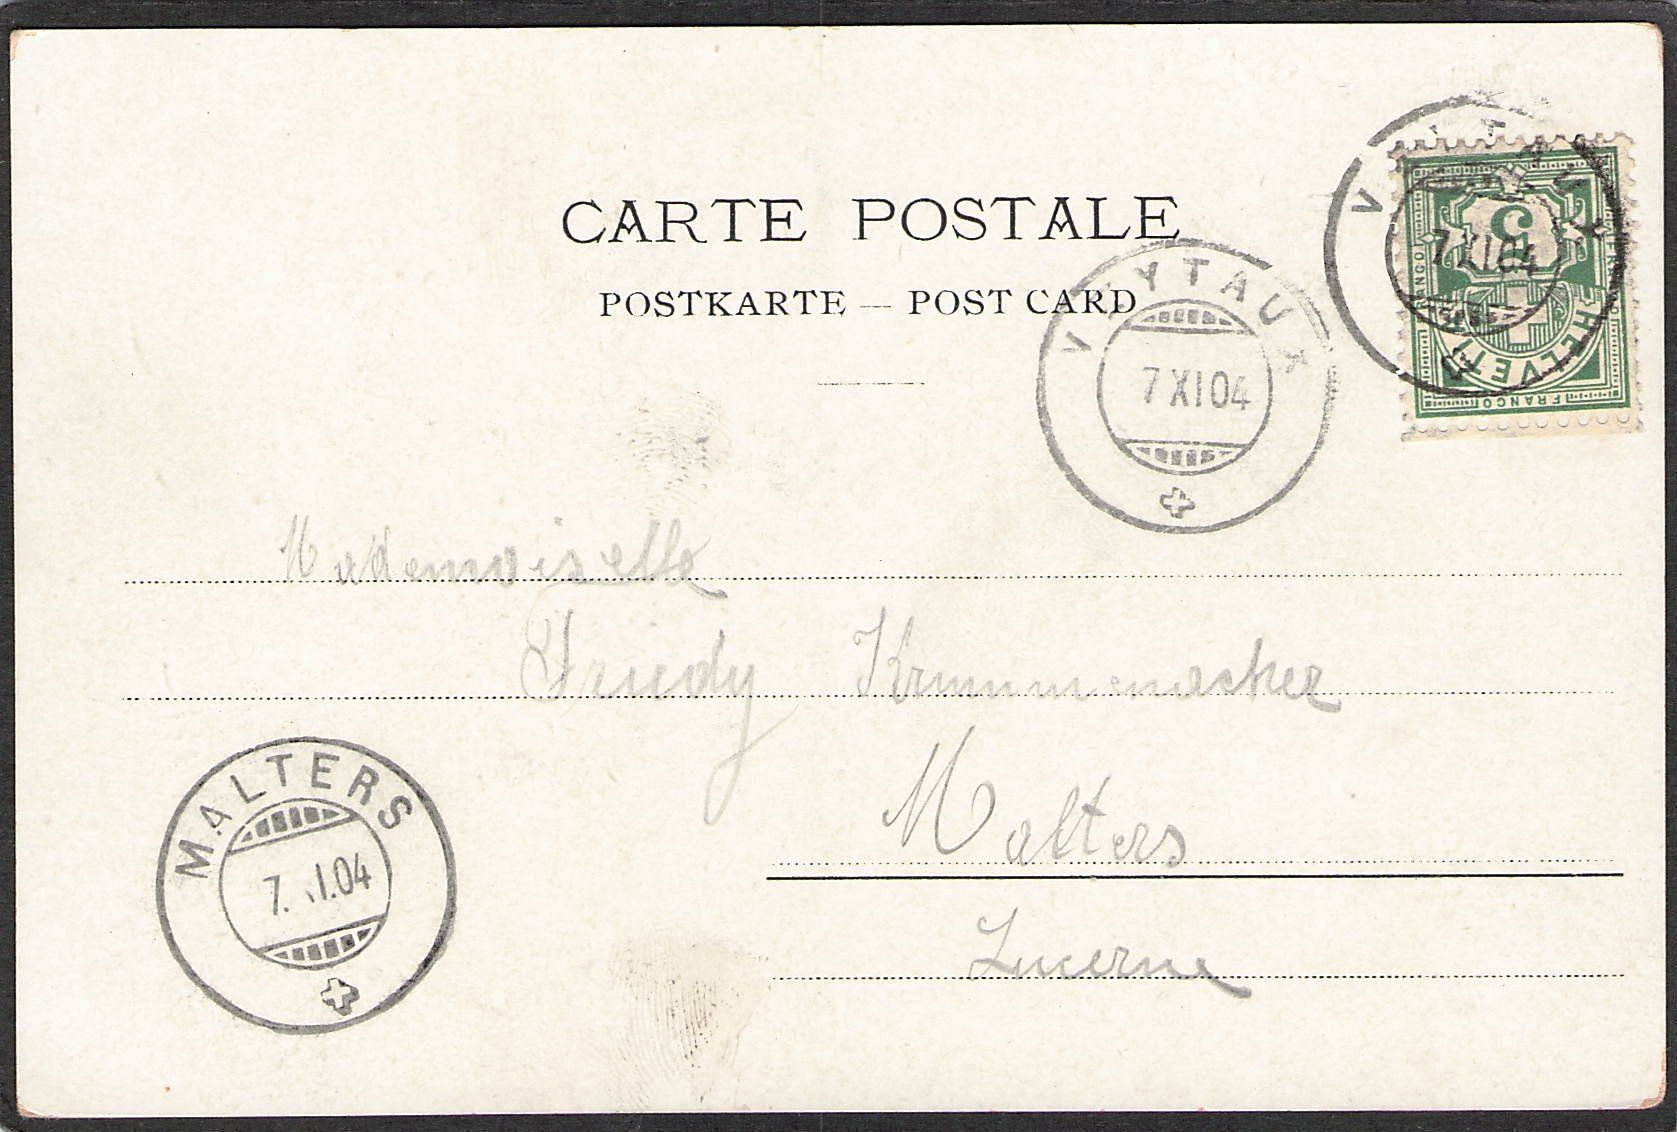 CARTE POSTALE
POSTKARTE — POST CARD
VEYTAUX
7 XI 04
7 XI 04
5
FRANCO
HELVETIA
FRANCO
Mademoiselle
Krummenacher
Malters
Lucerne
MALTERS
7. I.04